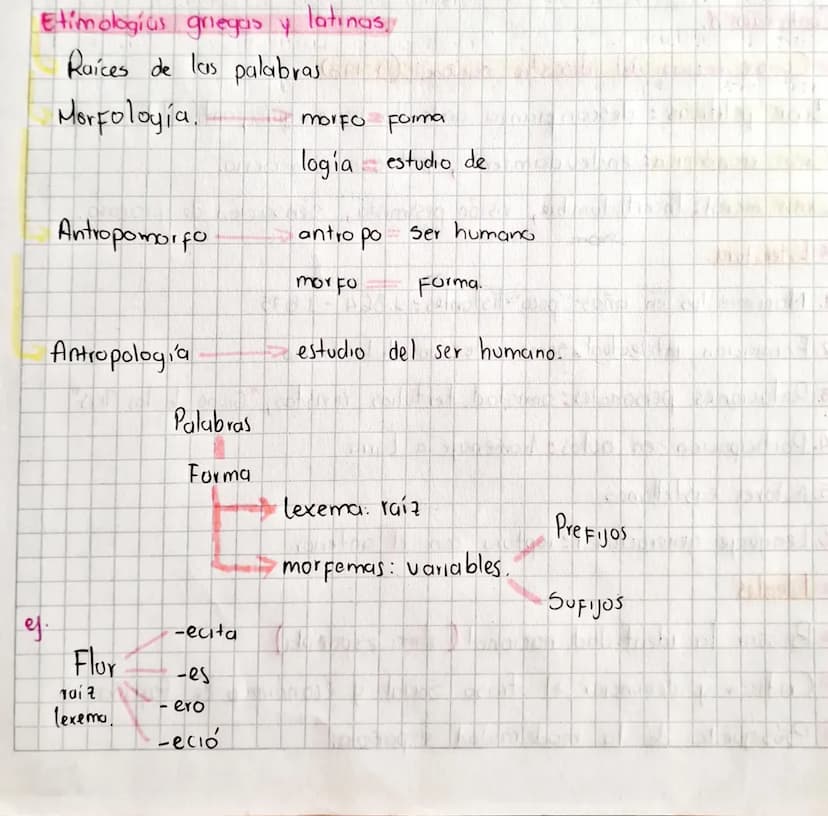 Etimologías griegas y latinas.
Raíces de las palabras
Morfología. morfo = forma
logía = estudio de
Antropomorfo antropo = ser humano
morfo = forma.
Antropología estudio del ser humano.
Palabras
Forma
lexema: raíz
morfemas: variables.
Prefijos
Sufijos
ej.
Flor
raíz
lexema.
-ecita
-es
-ero
-eció